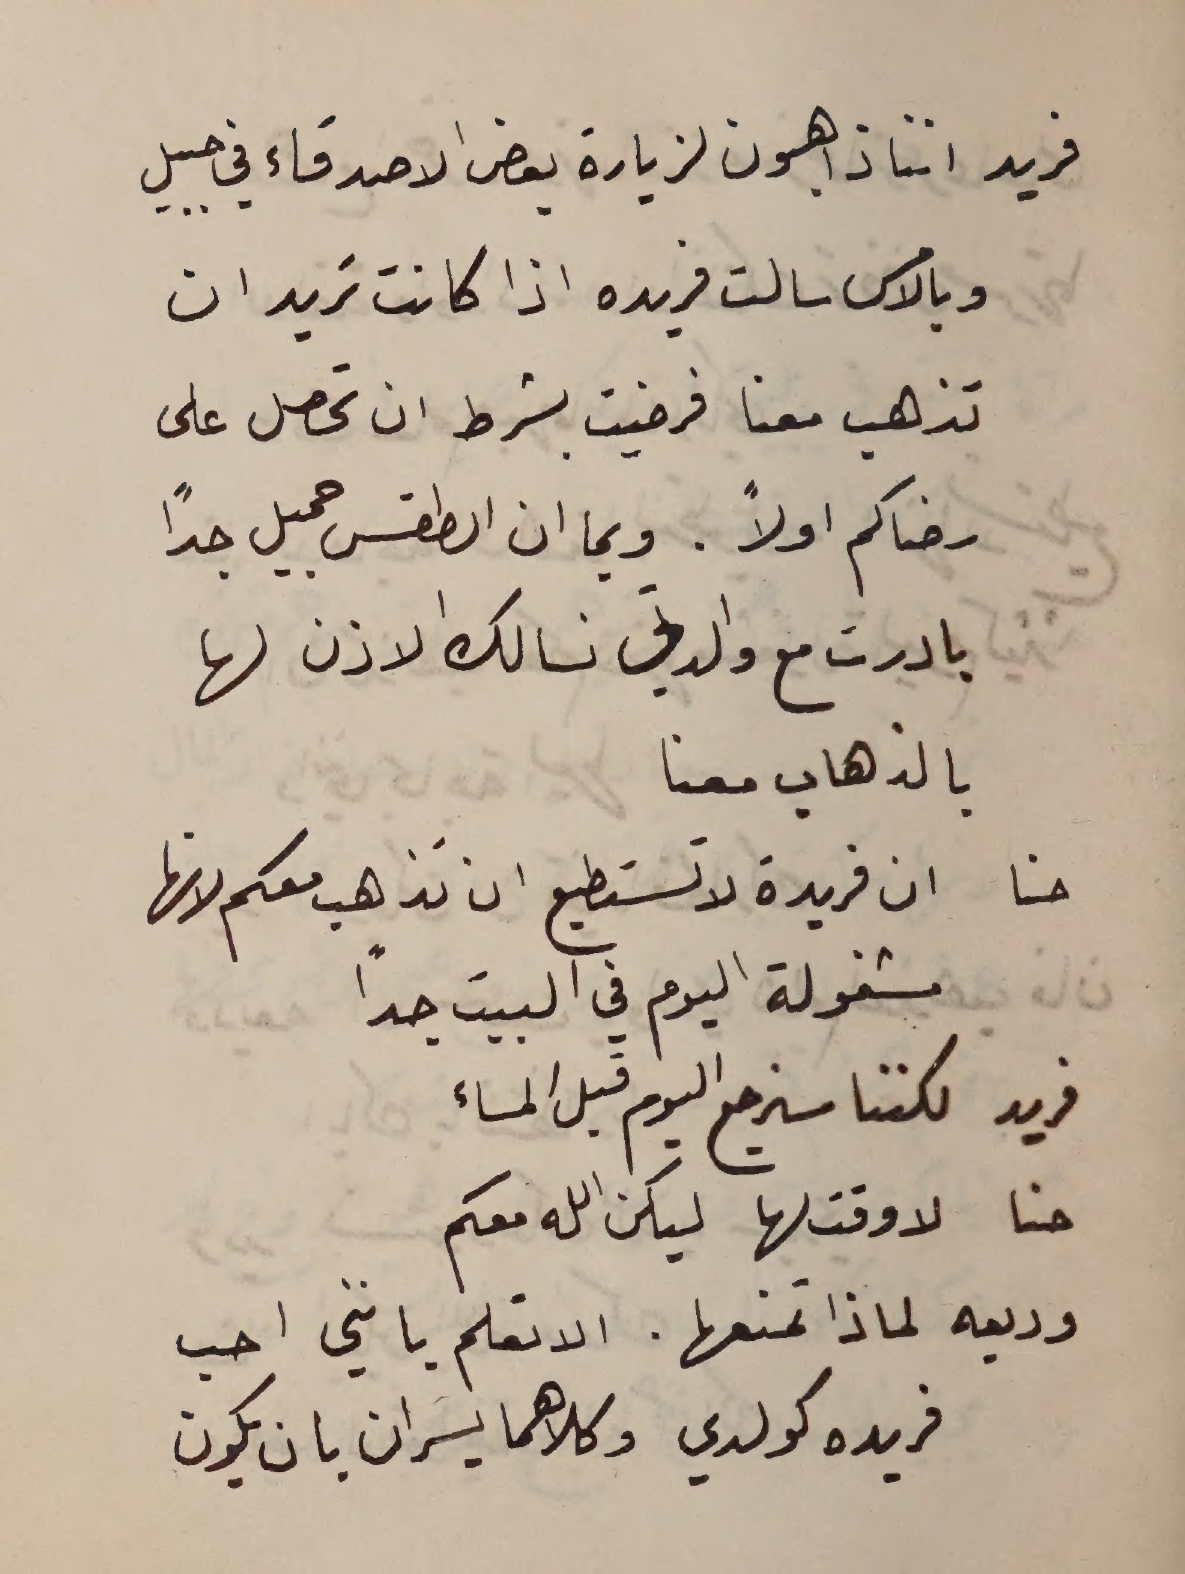 فريد اننا ذاهبون لزيارة بعض الاصدقاء في جبيل
وبالامس سالت فريده اذا كانت تريد ان
تذهب معنا فرضيت بشرط ان تحصل على
رضاكم اولاً . وبما ان الطقس جميل جداً
بادرت مع والدتي نسالك الاذن لها
بالذهاب معنا
حنا ان فريدة لا تستطيع ان تذهب معكم لانها
مشغولة اليوم في البيت جداً
فريد لكننا سنرجع اليوم قبل المساء
حنا لا وقت لها ليكن الله معكم
وديعه لماذا تمنعها . الا تعلم بانني احب
فريده كولدي وكلاهما يسَران بان يكون